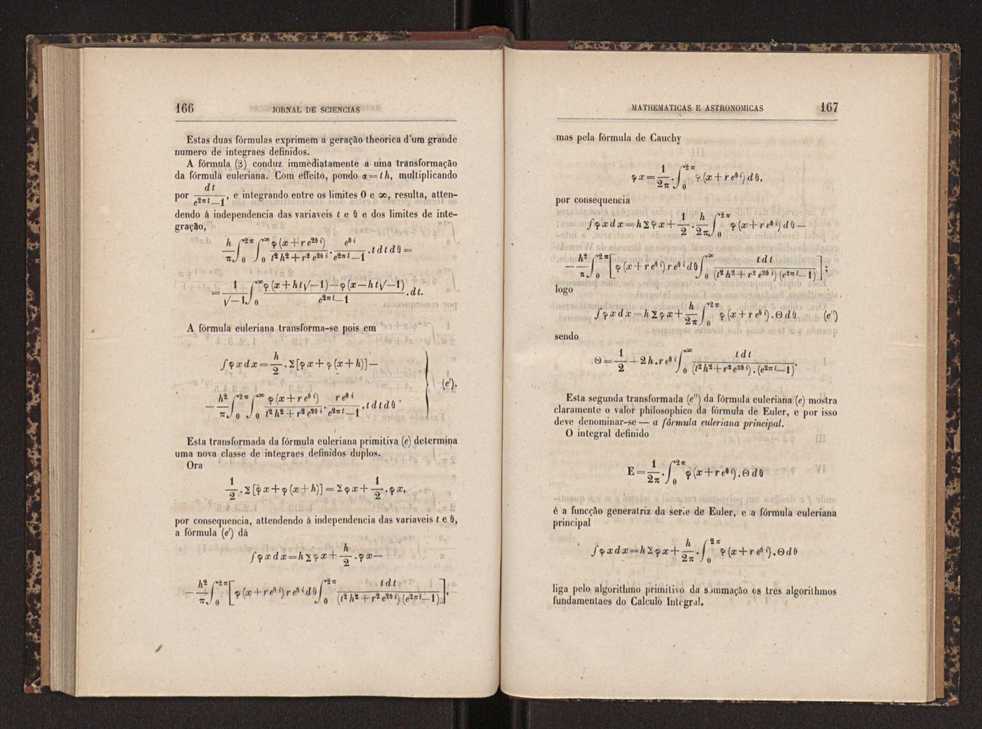 166 JORNAL DE SCIENCIAS
Estas duas fórmulas exprimem a geração theorica d'um grande
numero de integraes definidos.
A fórmula (β) conduz immediatamente a uma transformação
da fórmula euleriana. Com effeito, pondo α = t h, multiplicando
por dt / (e^{2πt} − 1), e integrando entre os limites 0 e ∞, resulta, atten-
dendo á independencia das variaveis t e θ e dos limites de inte-
gração,
h/π ∫_0^{2π} ∫_0^∞ φ(x + r e^{2θi}) / (t² h² + r² e^{2θi}) . e^{θi} / (e^{2πt} − 1) . t dt dθ =
= 1/√−1 ∫_0^∞ φ(x + ht√−1) − φ(x − ht√−1) / (e^{2πt} − 1) . dt.
A fórmula euleriana transforma-se pois em
∫φxdx = h/2 . Σ[φx + φ(x + h)] −
− h²/π ∫_0^{2π} ∫_0^∞ φ(x + r e^{θi}) / (t² h² + r² e^{2θi}) . r e^{θi} / (e^{2πt} − 1) . t dt dθ (e').
Esta transformada da fórmula euleriana primitiva (e) determina
uma nova classe de integraes definidos duplos.
Ora
1/2 . Σ[φx + φ(x + h)] = Σφx + 1/2 . φx,
por consequencia, attendendo á independencia das variaveis t e θ,
a fórmula (e') dá
∫φxdx = hΣφx + h/2 . φx −
− h²/π ∫_0^{2π} [φ(x + r e^{θi}) r e^{θi} dθ ∫_0^{2π} t dt / (t² h² + r² e^{2θi}) (e^{2πt} − 1)],
MATHEMATICAS E ASTRONOMICAS 167
mas pela fórmula de Cauchy
φx = 1/2π . ∫_0^{2π} φ(x + r e^{θi}) dθ,
por consequencia
∫φxdx = hΣφx + 1/2 . h/2π ∫_0^{2π} φ(x + r e^{θi}) dθ −
− h²/π ∫_0^{2π} [φ(x + r e^{θi}) r e^{θi} dθ ∫_0^∞ t dt / (t² h² + r² e^{2θi}) (e^{2πt} − 1)];
logo
∫φxdx = hΣφx + h/2π ∫_0^{2π} φ(x + r e^{θi}) . Θdθ (e'')
sendo
Θ = 1/2 − 2h . r e^{θi} ∫_0^∞ t dt / (t² h² + r² e^{2θi}) . (e^{2πt} − 1).
Esta segunda transformada (e'') da fórmula euleriana (e) mostra
claramente o valor philosophico da fórmula de Euler, e por isso
deve denominar-se — a fórmula euleriana principal.
O integral definido
E = 1/2π . ∫_0^{2π} φ(x + r e^{θi}) . Θdθ
é a funcção generatriz da serie de Euler, e a fórmula euleriana
principal
∫φxdx = hΣφx + h/2π . ∫_0^{2π} φ(x + r e^{θi}) . Θdθ
liga pelo algorithmo primitivo da sommação os tres algorithmos
fundamentaes do Calculo Integral.